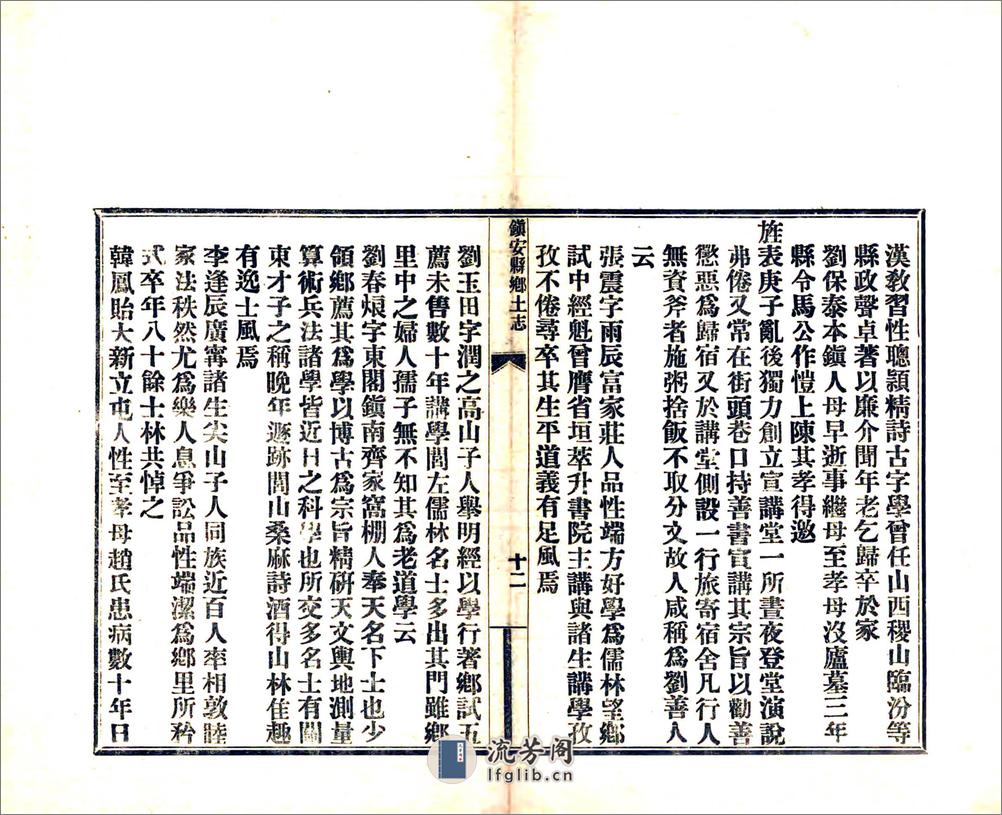 漢敎習性聰穎精詩古字學曾任山西稷山臨汾等
縣政聲卓著以廉介聞年老乞歸卒於家
劉保泰本鎭人母早逝事繼母至孝母沒廬墓三年
縣令馬公作愷上陳其孝得邀
旌表庚子亂後獨力創立宣講堂一所晝夜登堂演說
弗倦又常在街頭巷口持善書宣講其宗旨以勸善
懲惡爲歸宿又於講堂側設一行旅寄宿舍凡行人
無資斧者施粥捨飯不取分文故人咸稱爲劉善人
云
張震字雨辰富家莊人品性端方好學爲儒林望鄉
試中經魁曾膺省垣萃升書院主講與諸生講學孜
孜不倦尋卒其生平道義有足風焉
鎭安縣鄉土志
十二
劉玉田字潤之高山子人舉明經以學行著鄉試五
薦未售數十年講學閭左儒林名士多出其門雖鄉
里中之婦人孺子無不知其爲老道學云
劉春烺字東閣鎭南齊家窩棚人奉天名下士也少
領鄉薦其爲學以博古爲宗旨精硏天文輿地測量
算術兵法諸學皆近日之科學也所交多名士有關
東才子之稱晚年遯跡閭山桑麻詩酒得山林佳趣
有逸士風焉
李逢辰廣寗諸生尖山子人同族近百人率相敦睦
家法秩然尤爲樂人息爭訟品性端潔爲鄉里所矜
式卒年八十餘士林共悼之
韓鳳貽大新立屯人性至孝母趙氏患病數十年日
流芳阁
lfglib.cn